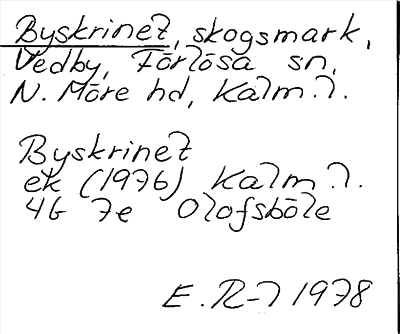 Byskrinet, skogsmark,
Vedby, Förlösa sn,
N. Möre hd, Kalm. l.
Byskrinet
ek (1976) Kalm. l.
4G 7e Olofsböle
E. R-l 1978